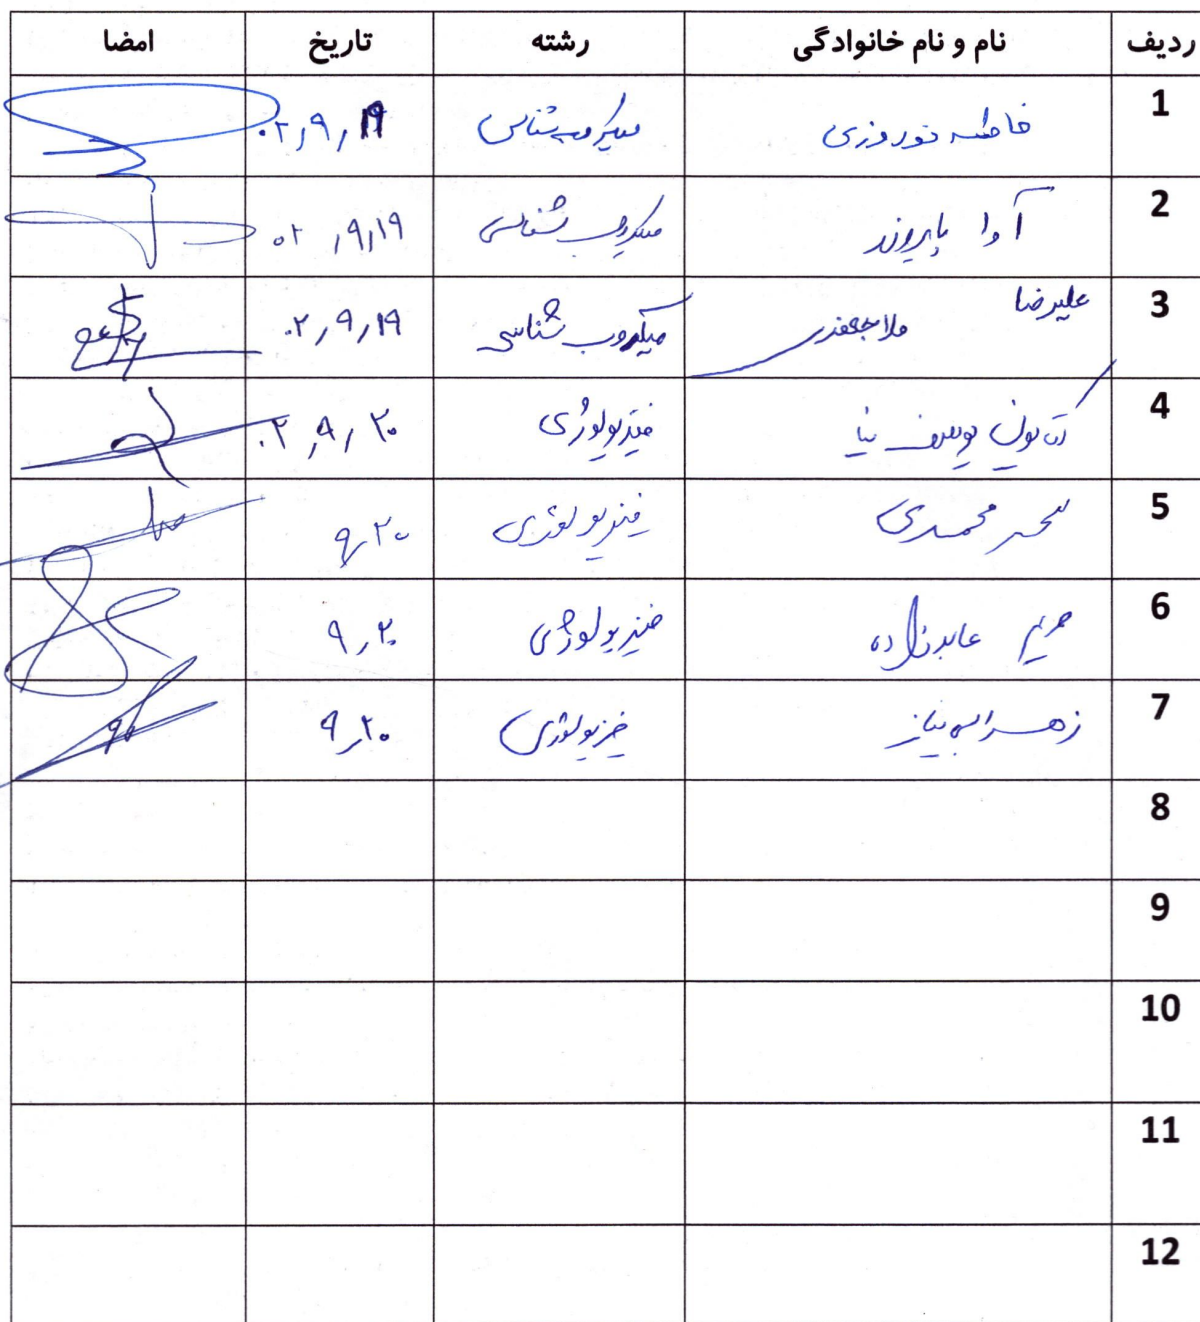 ردیف نام و نام خانوادگی رشته تاریخ امضا
1 فاطمه نوروزی میکروب شناسی ۰۲,۹,۱۹
2 آوا پایروند میکروب شناسی ۰۲,۹,۱۹
3 علیرضا ملاجعفری میکروب شناسی ۰۲,۹,۱۹
4 کتایون یوسف نیا فیزیولوژی ۰۲,۹,۲۰
5 سحر محمدی فیزیولوژی ۹,۲۰
6 مریم عابدزاده فیزیولوژی ۹,۲۰
7 زهرا فیزیولوژی ۹,۲۰
8
9
10
11
12